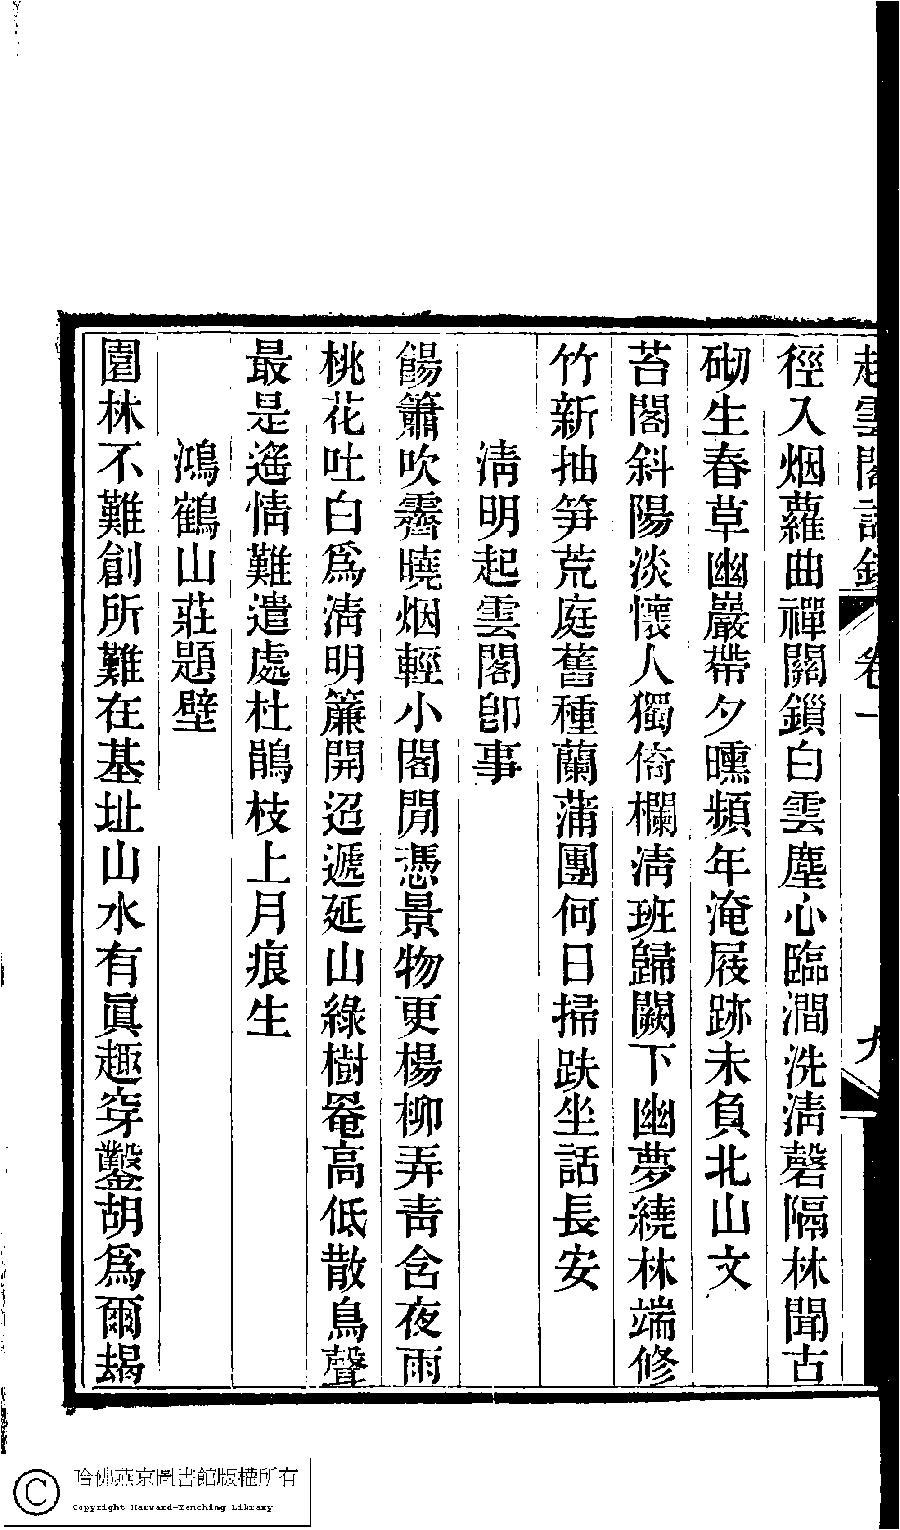 起雲閣詩鈔 卷一 九
徑入烟蘿曲禪關鎖白雲塵心臨澗洗淸磬隔林聞古
砌生春草幽巖帶夕曛頻年淹屐跡未負北山文
苔閣斜陽淡懷人獨倚欄淸班歸闕下幽夢繞林端修
竹新抽笋荒庭舊種蘭蒲團何日掃趺坐話長安
淸明起雲閣卽事
餳簫吹霽曉烟輕小閣閒憑景物更楊柳弄靑含夜雨
桃花吐白爲淸明簾開迢遞延山綠樹罨高低散鳥聲
最是遙情難遣處杜鵑枝上月痕生
鴻鶴山莊題壁
園林不難創所難在基址山水有眞趣穿鑿胡爲爾朅
哈佛燕京圖書館版權所有
Copyright Harvard-Yenching Library